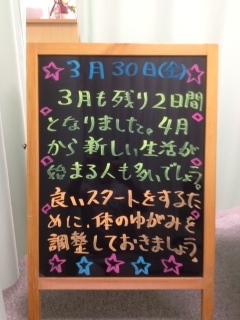 3月30日(金)
3月も残り2日間
となりました。4月
から新しい生活が
始まる人も多いでしょう。
良いスタートをするた
めに、体のゆがみを
調整しておきましょう!